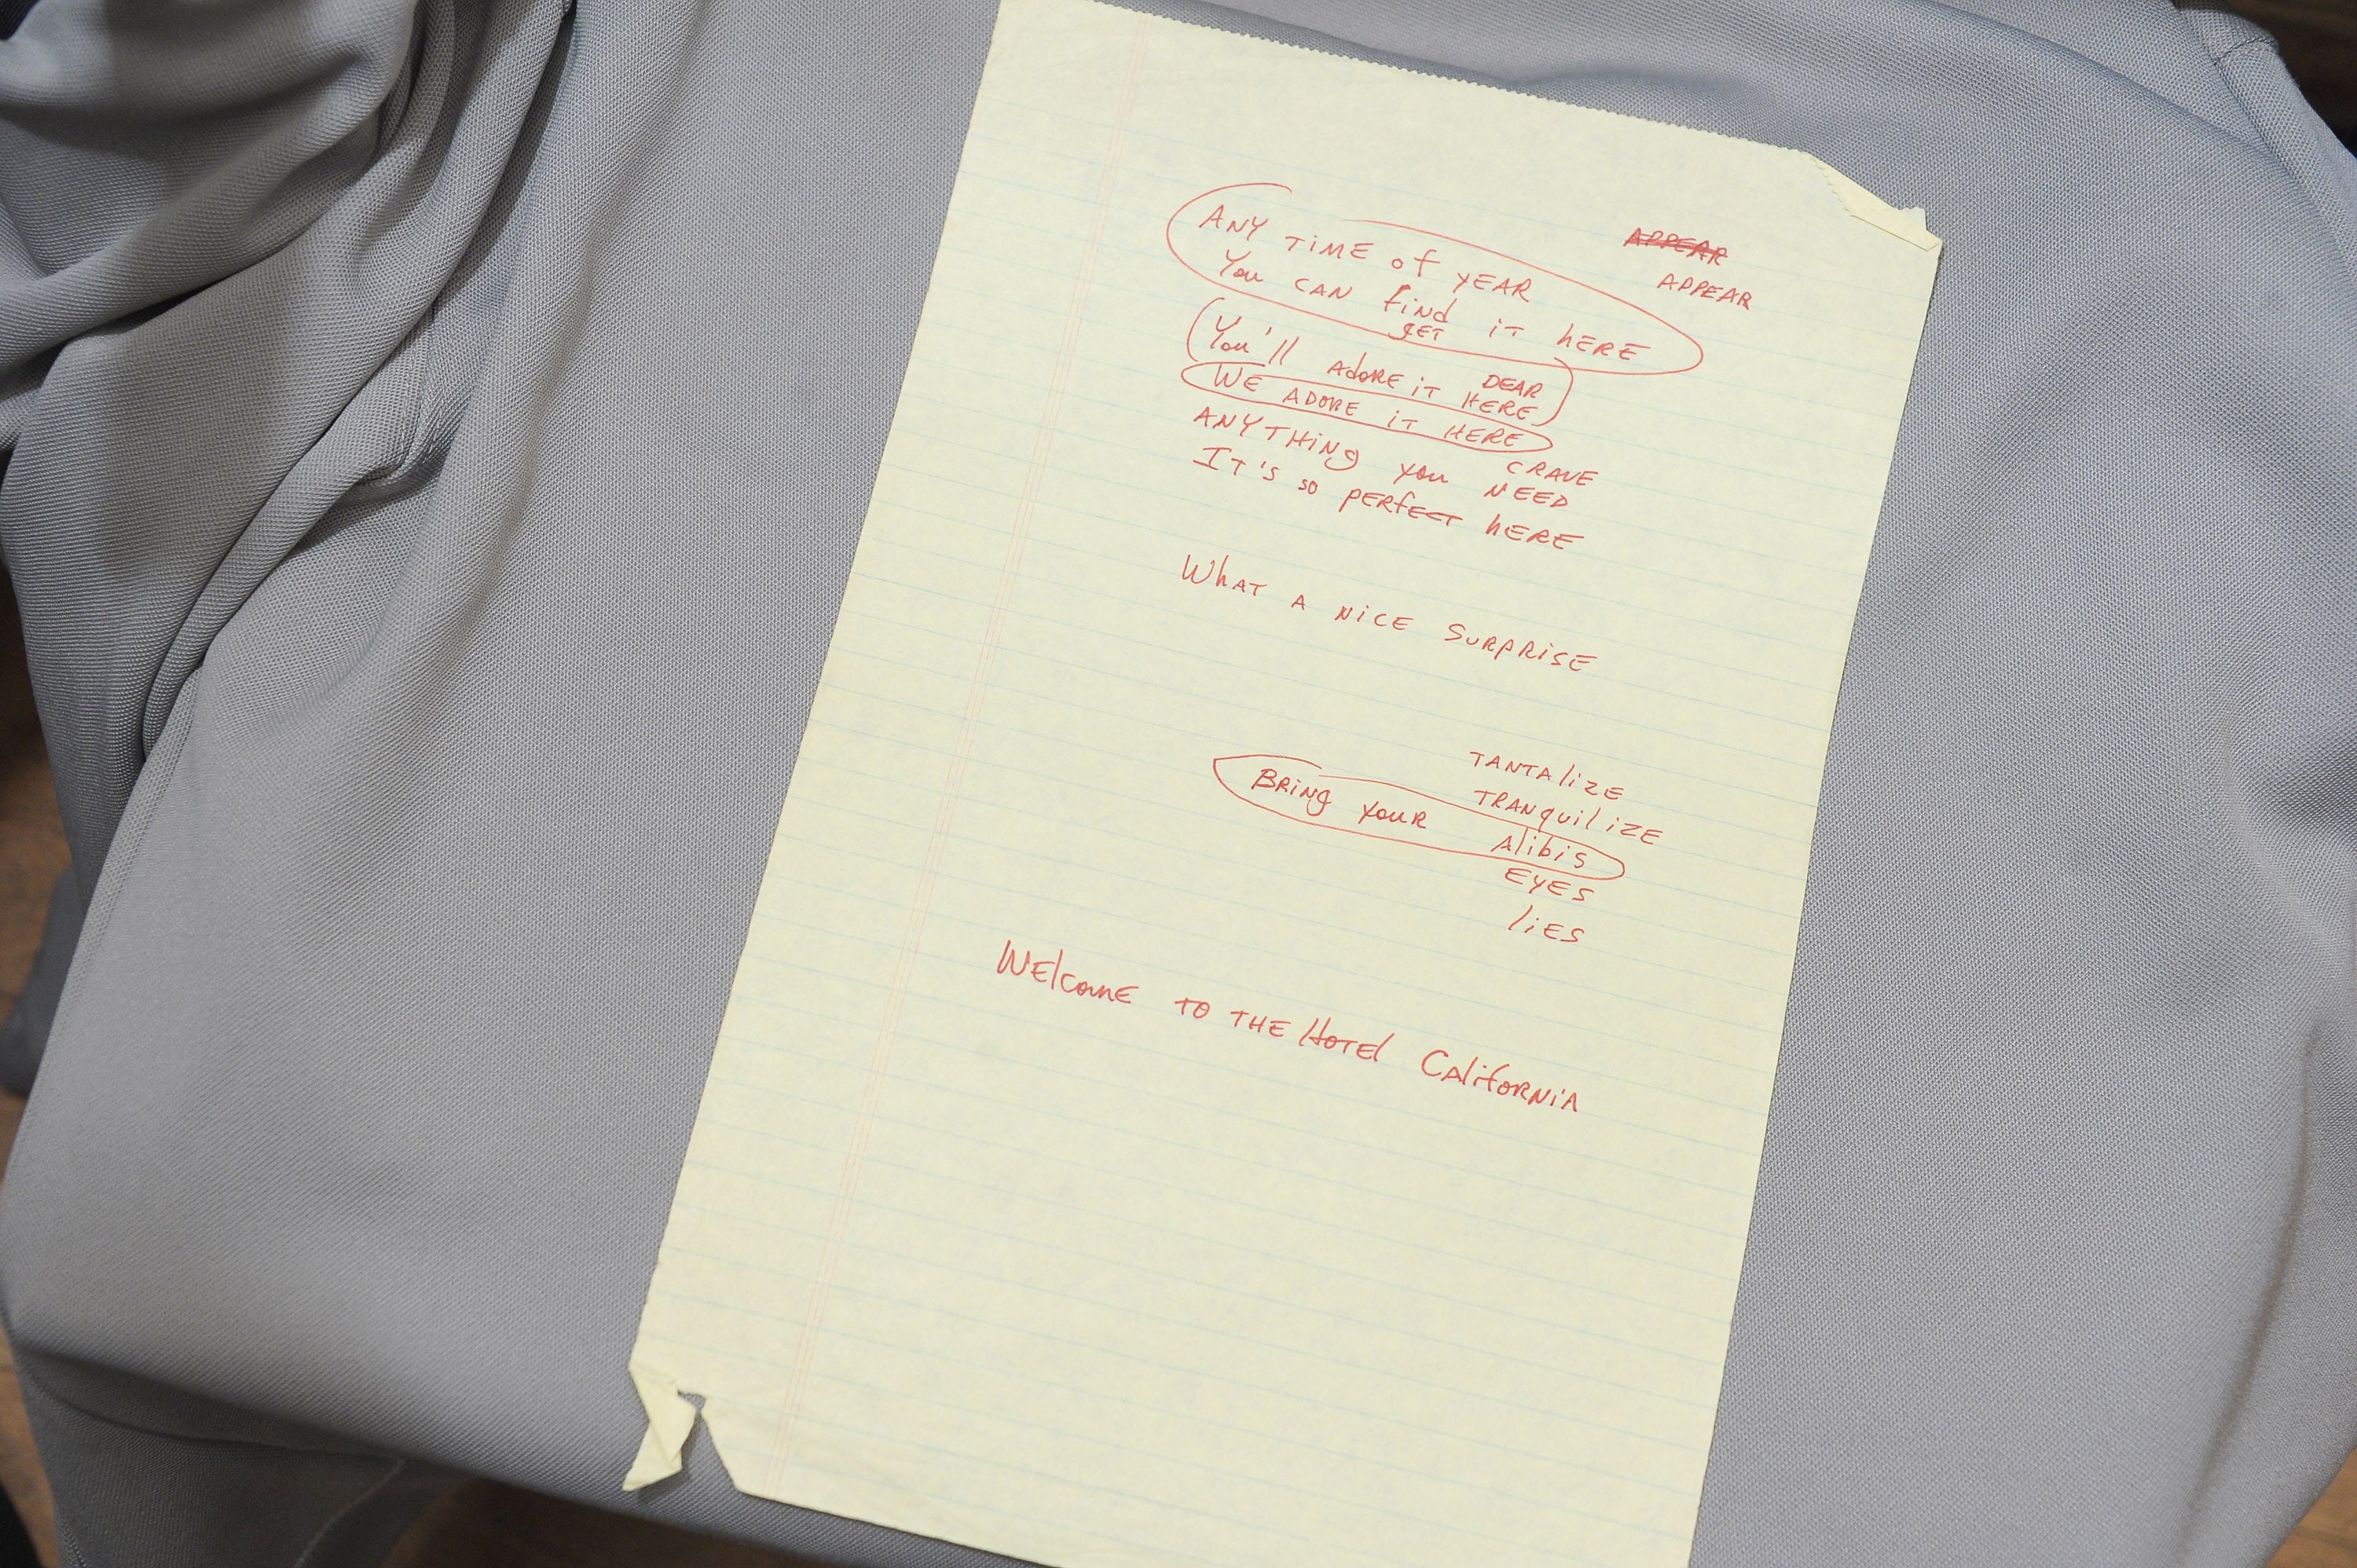 APPEAR
APPEAR
ANY TIME of YEAR
You CAN find iT hERE
gET
You'll AdORE iT HERE
DEAR
WE ADORE iT HERE
ANYTHiNg you NEED
CRAVE
IT'S so PERfECT hERE
WhAT A NiCE SuRPRiSE
TANTAlizE
TRANquilizE
BRiNg youR Alibis
EYES
liES
WElcomE TO THE HOTEl CAlifORNiA